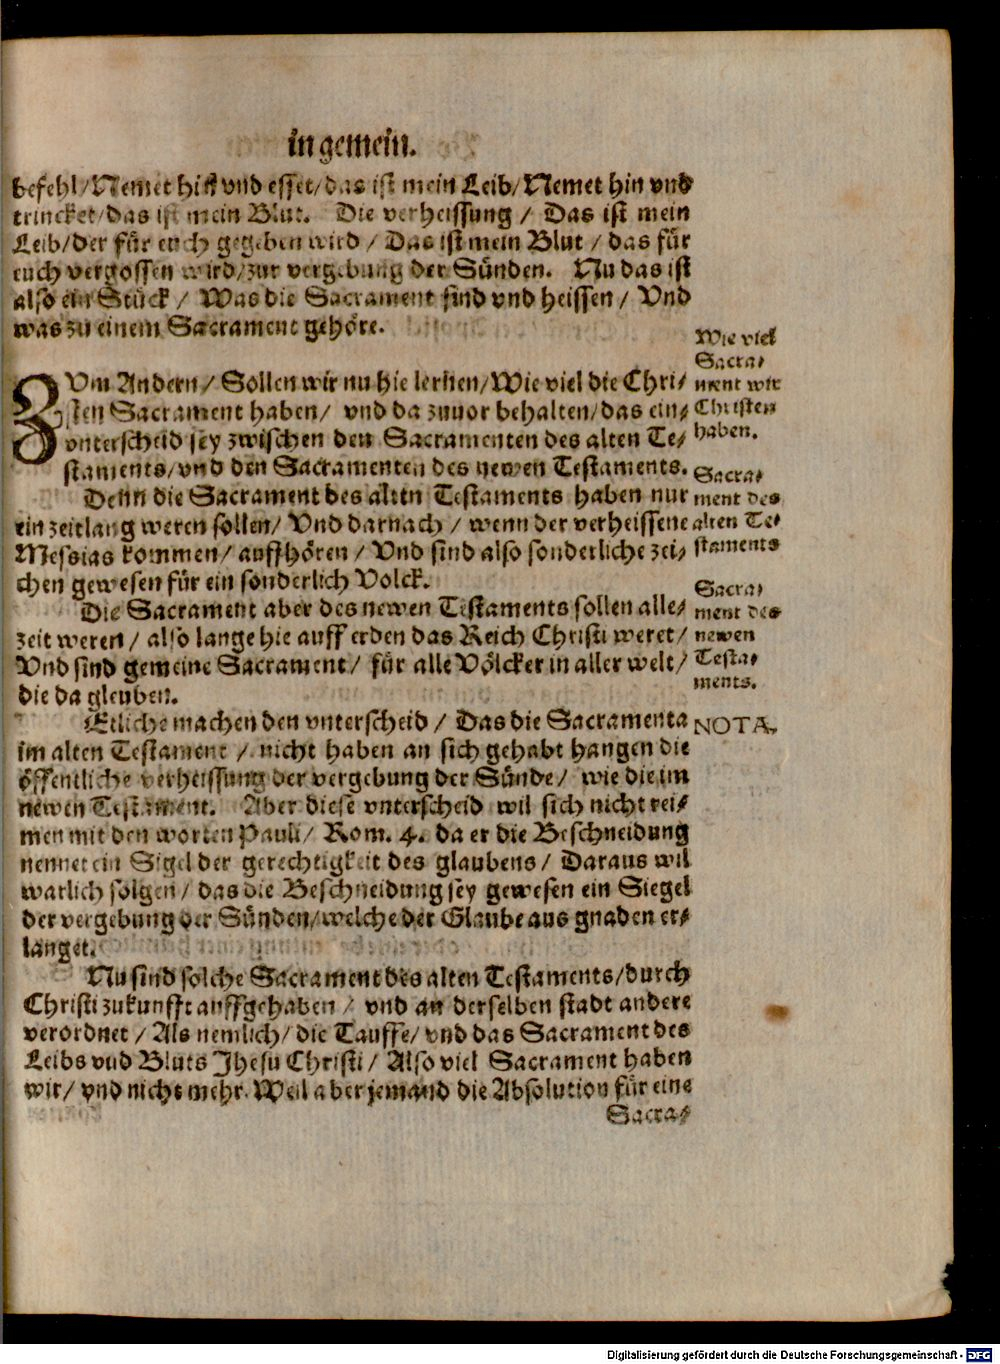 in gemein.
befehl/Nemet hin vnd esset/das ist mein Leib/Nemet hin vnd
trincket/das ist mein Blut. Die verheissung / Das ist mein
Leib/der für euch gegeben wird / Das ist mein Blut / das für
euch vergossen wird/zur vergebung der Sünden. Nu das ist
also ein Stück / Was die Sacrament sind vnd heissen / Vnd
was zu einem Sacrament gehöre.
Wie viel
Sacra-
ment wir
Christen
haben.
ZVm Andern / Sollen wir nu hie lernen/Wie viel die Chri-
sten Sacrament haben/ vnd da zuuor behalten/das ein-
vnterscheid sey zwischen den Sacramenten des alten Te-
staments/vnd den Sacramenten des newen Testaments.
Sacra-
ment des
alten Te-
staments
Denn die Sacrament des alten Testaments haben nur
ein zeitlang weren sollen/ Vnd darnach / wenn der verheissene
Messias kommen/ auffhören / Vnd sind also sonderliche zei-
chen gewesen für ein sonderlich Volck.
Sacra-
ment des
newen
Testa-
ments.
Die Sacrament aber des newen Testaments sollen alle-
zeit weren / also lange hie auff erden das Reich Christi weret/
Vnd sind gemeine Sacrament/ für alle Völcker in aller welt/
die da gleuben.
NOTA.
Etliche machen den vnterscheid / Das die Sacramenta
im alten Testament / nicht haben an sich gehabt hangen die
öffentliche verheissung der vergebung der Sünde/ wie die im
newen Testament. Aber diese vnterscheid wil sich nicht rei-
men mit den worten Pauli/ Rom. 4. da er die Beschneidung
nennet ein Sigel der gerechtigkeit des glaubens / Daraus wil
warlich folgen / das die Beschneidung sey gewesen ein Siegel
der vergebung der Sünden/welche der Glaube aus gnaden er-
langet.
Nu sind solche Sacrament des alten Testaments/durch
Christi zukunfft auffgehaben / vnd an derselben stadt andere
verordnet / Als nemlich/ die Tauffe/ vnd das Sacrament des
Leibs vnd Bluts Jhesu Christi / Also viel Sacrament haben
wir/ vnd nicht mehr. Weil aber jemand die Absolution für eine
Sacra-
Digitalisierung gefördert durch die Deutsche Forschungsgemeinschaft - DFG